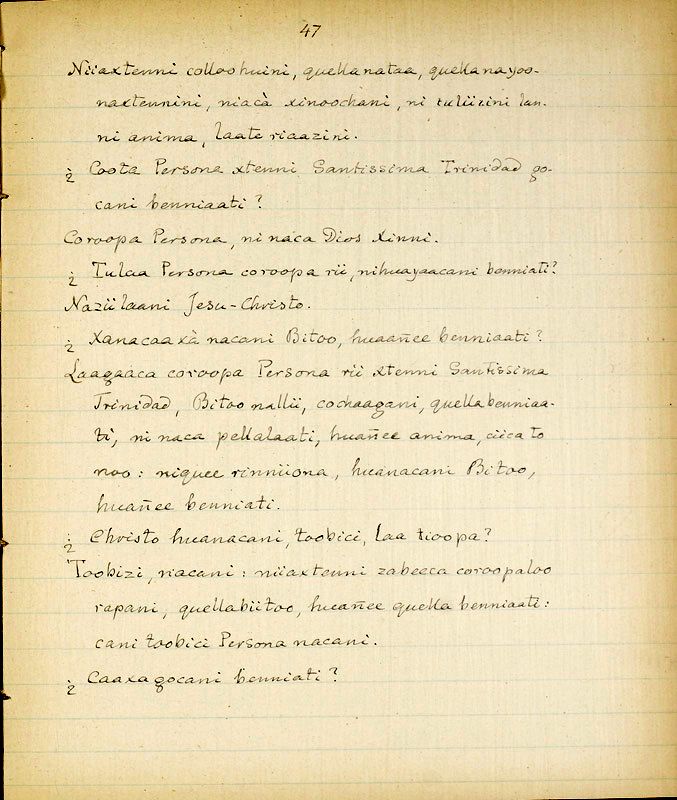 47
Niiaxtenni colloohuini, quellanataa, quellanayoo-
naxtennini, niacà xinoochani, ni tuliizini lan-
ni anima, laate riaazini.
¿ Coota Persona xtenni Santissima Trinidad go-
cani benniaati?
Coroopa Persona, ni naca Dios Xinni.
¿ Tulaa Persona coroopa rii, nihuayaacani benniati?
Naziilaani Jesu-Christo.
¿ Xanacaaxà nacani Bitoo, huaañee benniaati?
Laagaaca coroopa Persona rii xtenni Santissima
Trinidad, Bitoo nallii, cochaagani, quellabenniaa-
ti, ni naca pellalaati, huañee anima, ciica to
noo: niquee rinniiona, huanacani Bitoo,
huañee benniati.
¿ Christo huanacani, toobici, Laa tioopa?
Toobizi, nacani: niiaxtenni zabeeca coroopaloo
rapani, quellabiitoo, hucañee quella benniaati:
cani toobici Persona nacani.
¿ Caaxa gocani benniati?